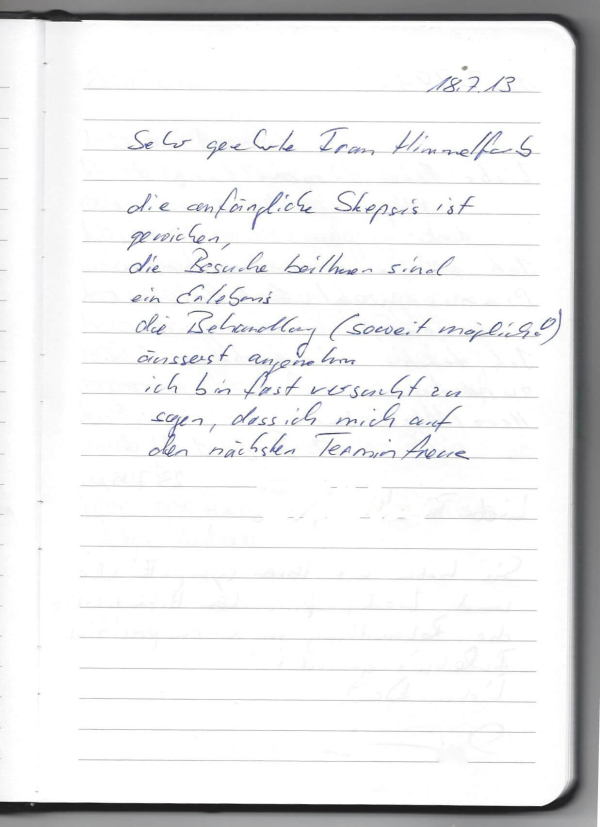 18.7.13
Sehr geehrte Frau Himmelfarb
die anfängliche Skepsis ist
gewichen,
die Besuche bei Ihnen sind
ein Erlebnis
die Behandlung (soweit möglich!)
äusserst angenehm
ich bin fast versucht zu
sagen, dass ich mich auf
den nächsten Termin freue